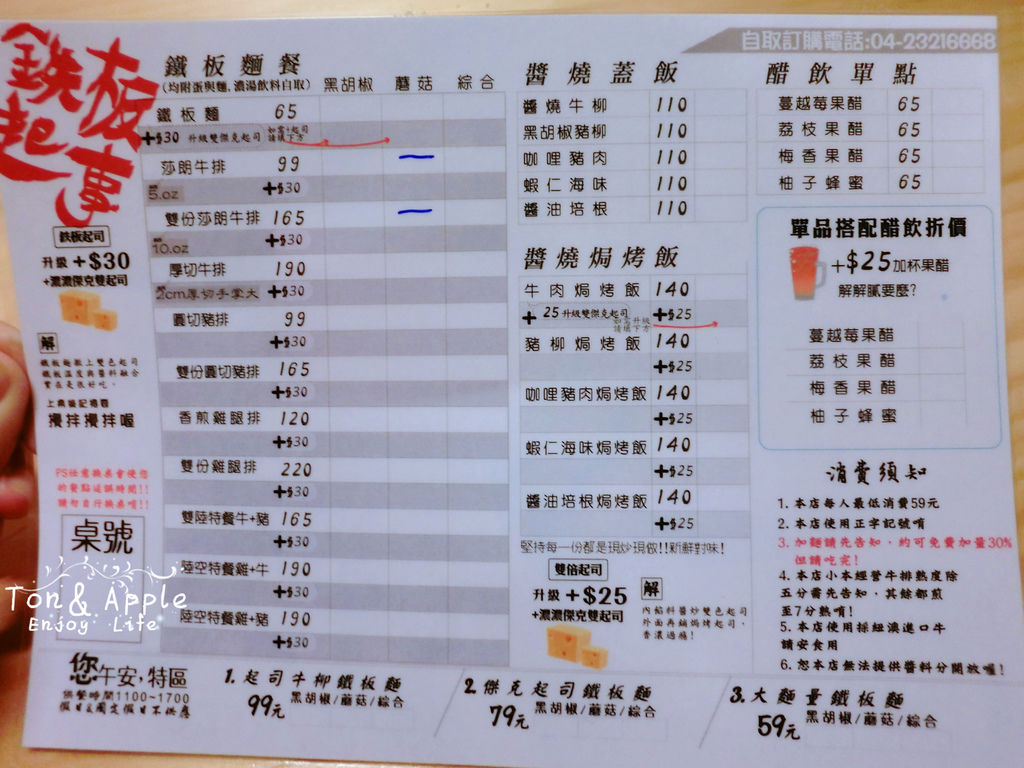 鉄板起事
鉄板起司
升級+$30
+濃濃傑克雙起司
解
上桌後記得要
攪拌攪拌喔
PS任意換桌會使您
的餐點延誤時間!!
請勿自行換桌唷!!
桌號
Ton & Apple
Enjoy Life
鐵板麵餐
(均附蛋與麵.濃湯飲料自取)
黑胡椒 蘑菇 綜合
鐵板麵 65
+$30 升級雙傑克起司 如需+起司
請填下方
莎朗牛排 99
5.oz +$30
雙份莎朗牛排 165
10.oz +$30
厚切牛排 190
2cm厚切手掌大 +$30
圓切豬排 99
+$30
雙份圓切豬排 165
+$30
香煎雞腿排 120
+$30
雙份雞腿排 220
+$30
雙陸特餐牛+豬 165
+$30
陸空特餐雞+牛 190
+$30
陸空特餐雞+豬 190
+$30
醬燒蓋飯
醬燒牛柳 110
黑胡椒豬柳 110
咖哩豬肉 110
蝦仁海味 110
醬油培根 110
醬燒焗烤飯
牛肉焗烤飯 140
+ 25 升級雙傑克起司 如需升級
請填下方 +$25
豬柳焗烤飯 140
+$25
咖哩豬肉焗烤飯 140
+$25
蝦仁海味焗烤飯 140
+$25
醬油培根焗烤飯 140
+$25
堅持每一份都是現炒現做!!新鮮對味!
雙倍起司
升級+$25
+濃濃傑克雙起司
解
內餡料醬炒雙色起司
外面再鋪焗烤起司,
香濃過癮!
自取訂購電話:04-23216668
醋飲單點
蔓越莓果醋 65
荔枝果醋 65
梅香果醋 65
柚子蜂蜜 65
單品搭配醋飲折價
+$25加杯果醋
解解膩要麼?
蔓越莓果醋
荔枝果醋
梅香果醋
柚子蜂蜜
消費須知
1. 本店每人最低消費59元
2. 本店使用正字記號唷
3. 加麵請先告知,約可免費加量30%
但請吃完!
4. 本店小本經營牛排熟度除
五分需先告知,其餘都煎
至7分熟唷!
5. 本店使用採紐澳進口牛
請安食用
6. 恕本店無法提供醬料分開放喔!
您午安,特區
供餐時間1100~1700
假日&國定假日不供應
1. 起司牛柳鐵板麵
99元 黑胡椒/蘑菇/綜合
2. 傑克起司鐵板麵
79元 黑胡椒/蘑菇/綜合
3. 大麵量鐵板麵
59元 黑胡椒/蘑菇/綜合